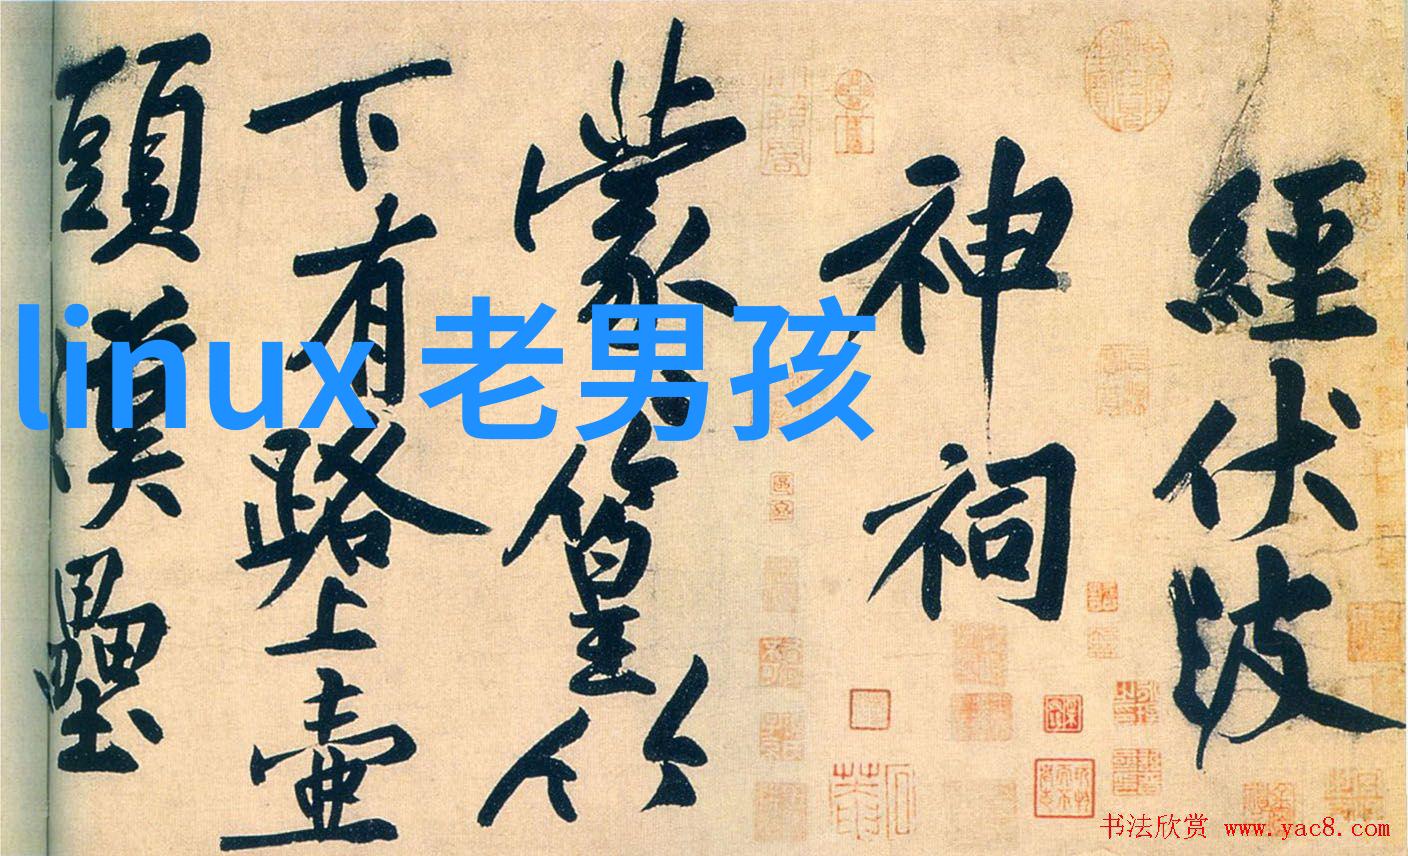 經伏波
神祠
蒙〻篁竹
下有路上壺
頭漢壘
linux 老男孩
书法欣赏 www.yac8.com